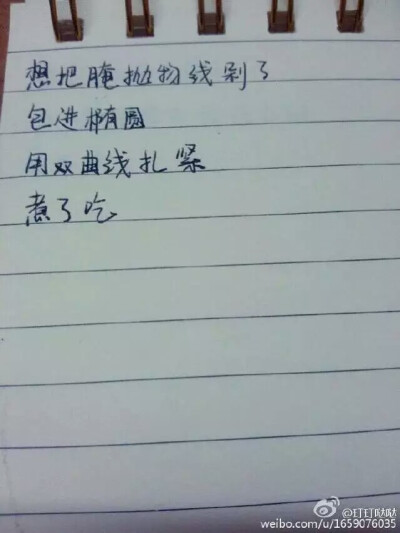 想把腌抛物线剁了
包进椭圆
用双曲线扎紧
煮了吃
weibo.com/u/1659076035